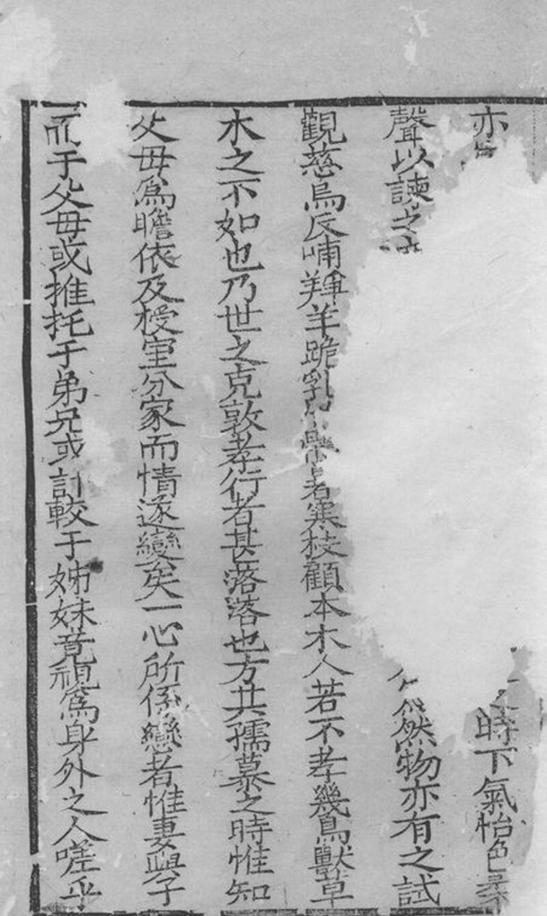 亦時下氣怡色柔
聲以諫之然物亦有之試
觀慈烏反哺羜羊跪乳者寒枝顧本木人若不孝幾鳥獸草
木之不如也乃世之克敦孝行者甚落落也方其孺慕之時惟知
父母為瞻依及授室分家而情遂變矣一心所係戀者惟妻與子
而于父母或推托于弟兄或計較于姊妹竟視為身外之人嗟乎